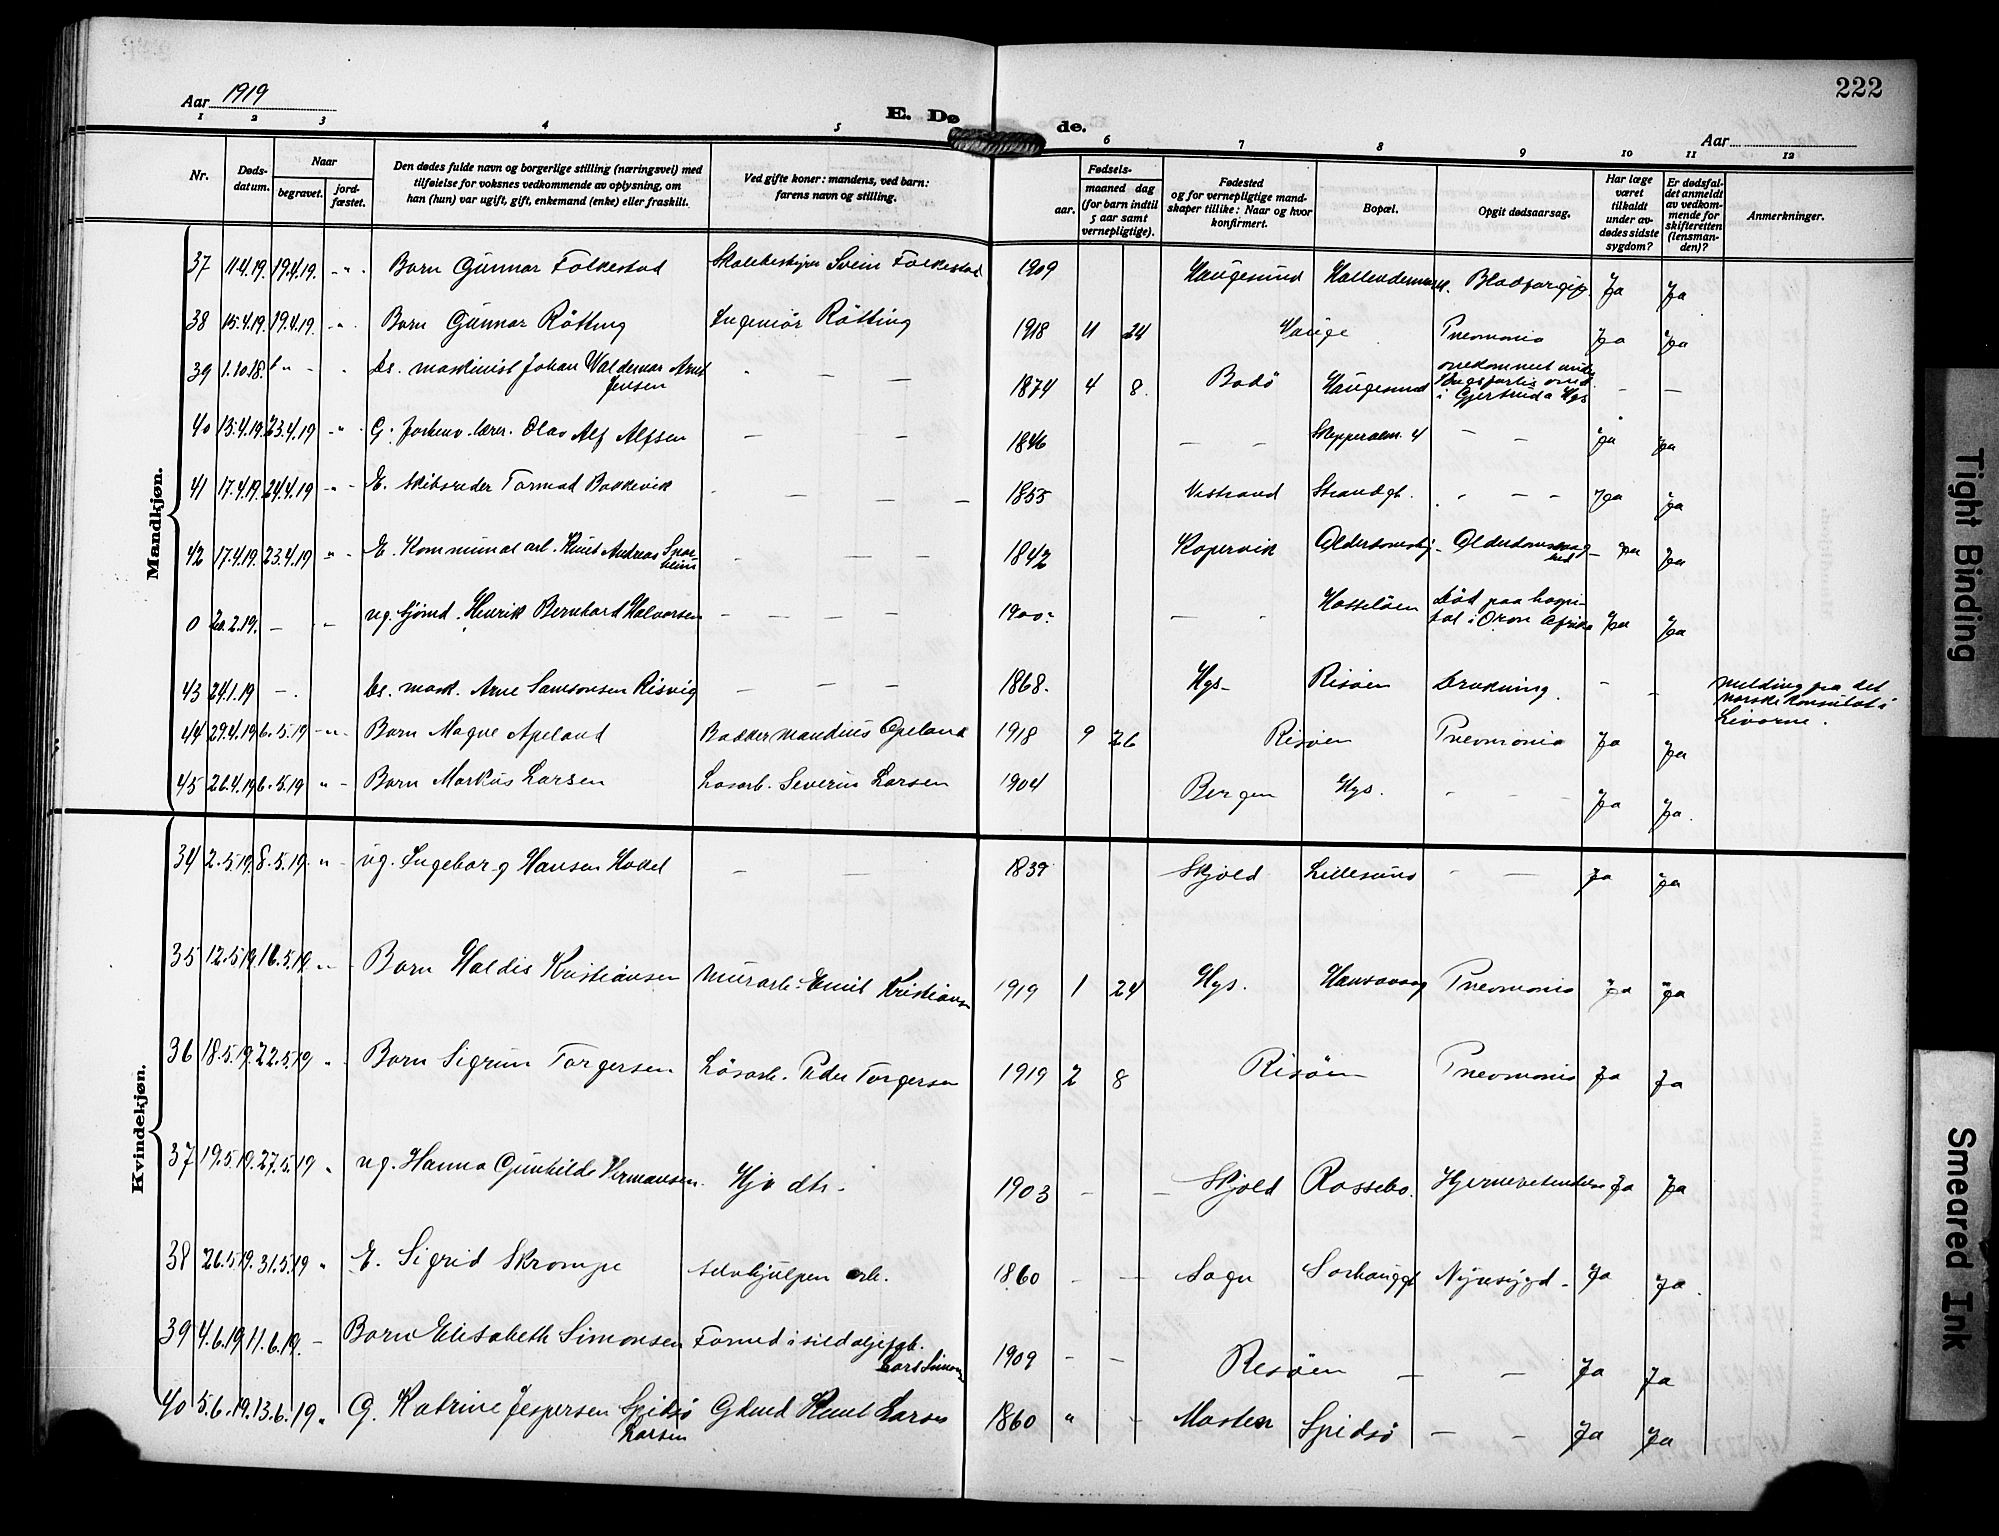 222
Aar 1919
E. Døde.
Aar
1 2 3 4 5 6 7 8 9 10 11 12
Nr.
Døds-datum.
Naar
begravet.
jord-fæstet.
Den dødes fulde navn og borgerlige stilling (næringsvei) med
tilføielse for voksnes vedkommende av oplysning, om
han (hun) var ugift, gift, enkemand (enke) eller fraskilt.
Ved gifte koner: mandens, ved barn:
farens navn og stilling.
Fødsels-
aar.
maaned dag
(for barn indtil
5 aar samt
vernepligtige).
Fødested
og for vernepligtige mand-
skaper tillike: Naar og hvor
konfirmert.
Bopæl.
Opgit dødsaarsag.
Har læge
været
tilkaldt
under av-
dødes sidste
sygdom?
Er dødsfal-
det anmeldt
av vedkom-
mende for
skifteretten
(lensman-
den)?
Anmerkninger.
Mandkjøn.
37 11.4.19. 19.4.19. - " - Barn Gunnar Folkestad Skolebestyrer Svein Folkestad 1909 Haugesund Blodforgift. Ja Ja
38 15.4.19. 19.4.19. - " - Barn Gunnar Rötting Ingeniør Rötting 1918 11 24 Hauge Pneumonia Ja Ja
39 1.10.18. maskinist Johan Waldemar Arnt
Jensen 1874 4 8. Bodö Haugesund omkommet
i Gjertrud a Hgs - -
40 15.4.19. 23.4.19 - " - G. forhenv. lærer. Olav Alf Alfsen - - 1846 - - 4 - - Ja Ja
41 17.4.19. 24.4.19 - " - E. Skibsreder Tormod Bakkevik - - - 1855 Strandgt. - - - Ja Ja
42 17.4.19. 23.4.19 " - E. Kommunal arb. Knut Andreas
1842 Kopervik Ja Ja
0 20.2.19. - - ug. sjömd. Henrik Bernhard Halvorsen - - - 1900. - - Hasselöen Död paa hospi-
tal i Oran Afrika Ja Ja
43 24.1.19 - mask. Arne Samsonsen Risvig - - - 1868. Hgs - Risöen Drukning. - - melding fra det
norske konsulat i
Livorno.
44 29.4.19 6.5.19 - " - Barn Magne Apeland Apeland 1918 9 26 Risöen Pneumonia Ja Ja
45 26.4.19 6.5.19 " - Barn Markus Larsen Lösarb. Severin Larsen 1904 Bergen Hgs. - - - Ja Ja.
Kvindekjøn.
34 2.5.19. 8.5.19. " - ug. Ingeborg Hansen - - Skjold Lillesund - - Ja Ja
35 12.5.19. 16.5.19. " - Barn Haldis Kristiansen Murarb. Emil Kristiansen 1919 1 24 Hgs. Pneumonia Ja Ja
36 18.5.19. 22.5.19 " - Barn Sigrun Torgersen Lösarb. Peder Torgersen 1919 2 8 Risöen Pneumonia Ja Ja
37 19.5.19. 27.5.19 " ug. Hanna Gunhilde Hermansen. 1903 - - Skjold Rossebo. Ja Ja
38 26.5.19. 31.5.19 " E. Sigrid Skrompe selvhjulpen arb. 1860 - - Sogn Sörhauggt Nyresygd - Ja Ja.
39 4.6.19 11.6.19. - Barn Elisabeth Simonsen Formd i sildoljefab.
Lars 1909 - - Risöen - - Ja Ja
40 5.6.19. 13.6.19 " G. Katrine Jespersen Spidsö
Larsen Knut Larsen 1860 " - Moster Spidsö - - Ja Ja
Tight Binding
Smeared Ink